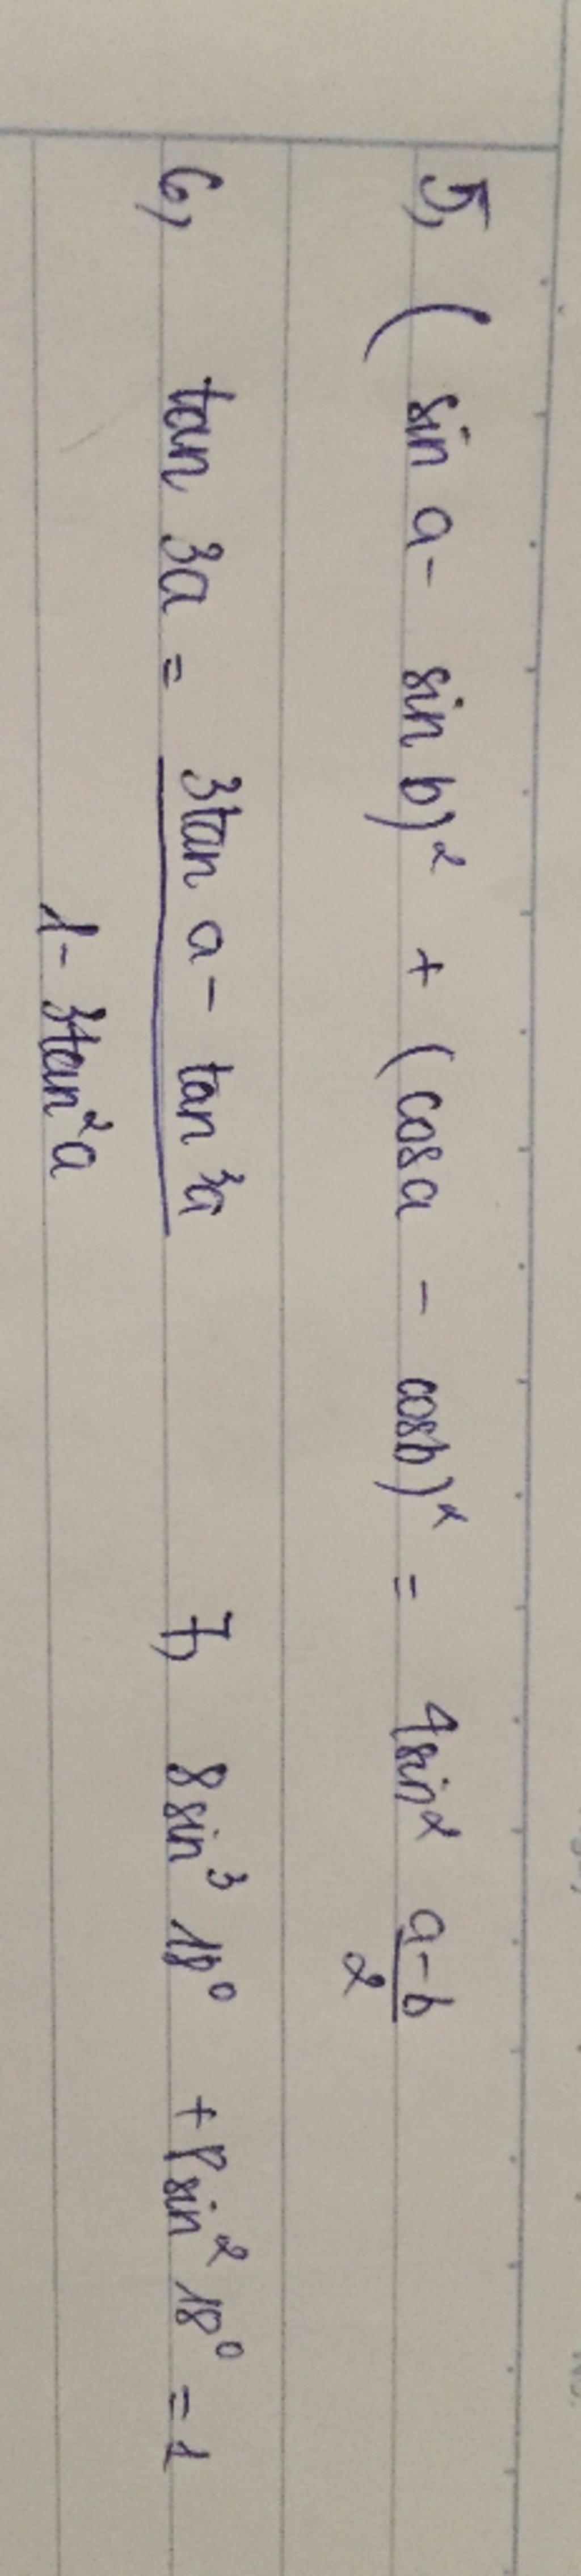 5, (sin a - sin b)² + (cos a - cos b)² = 4sin² a-b/2
6, tan 3a = 3tan a - tan³a / 1 - 3tan²a    7, 8 sin³ 18° + 8 sin² 18° = 1